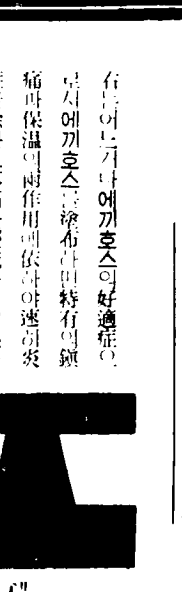 右는어느거나에끼호스의好適症으
로서에끼호스를塗布하면特有의鎭
痛과保溫의兩作用에依하야速히炎